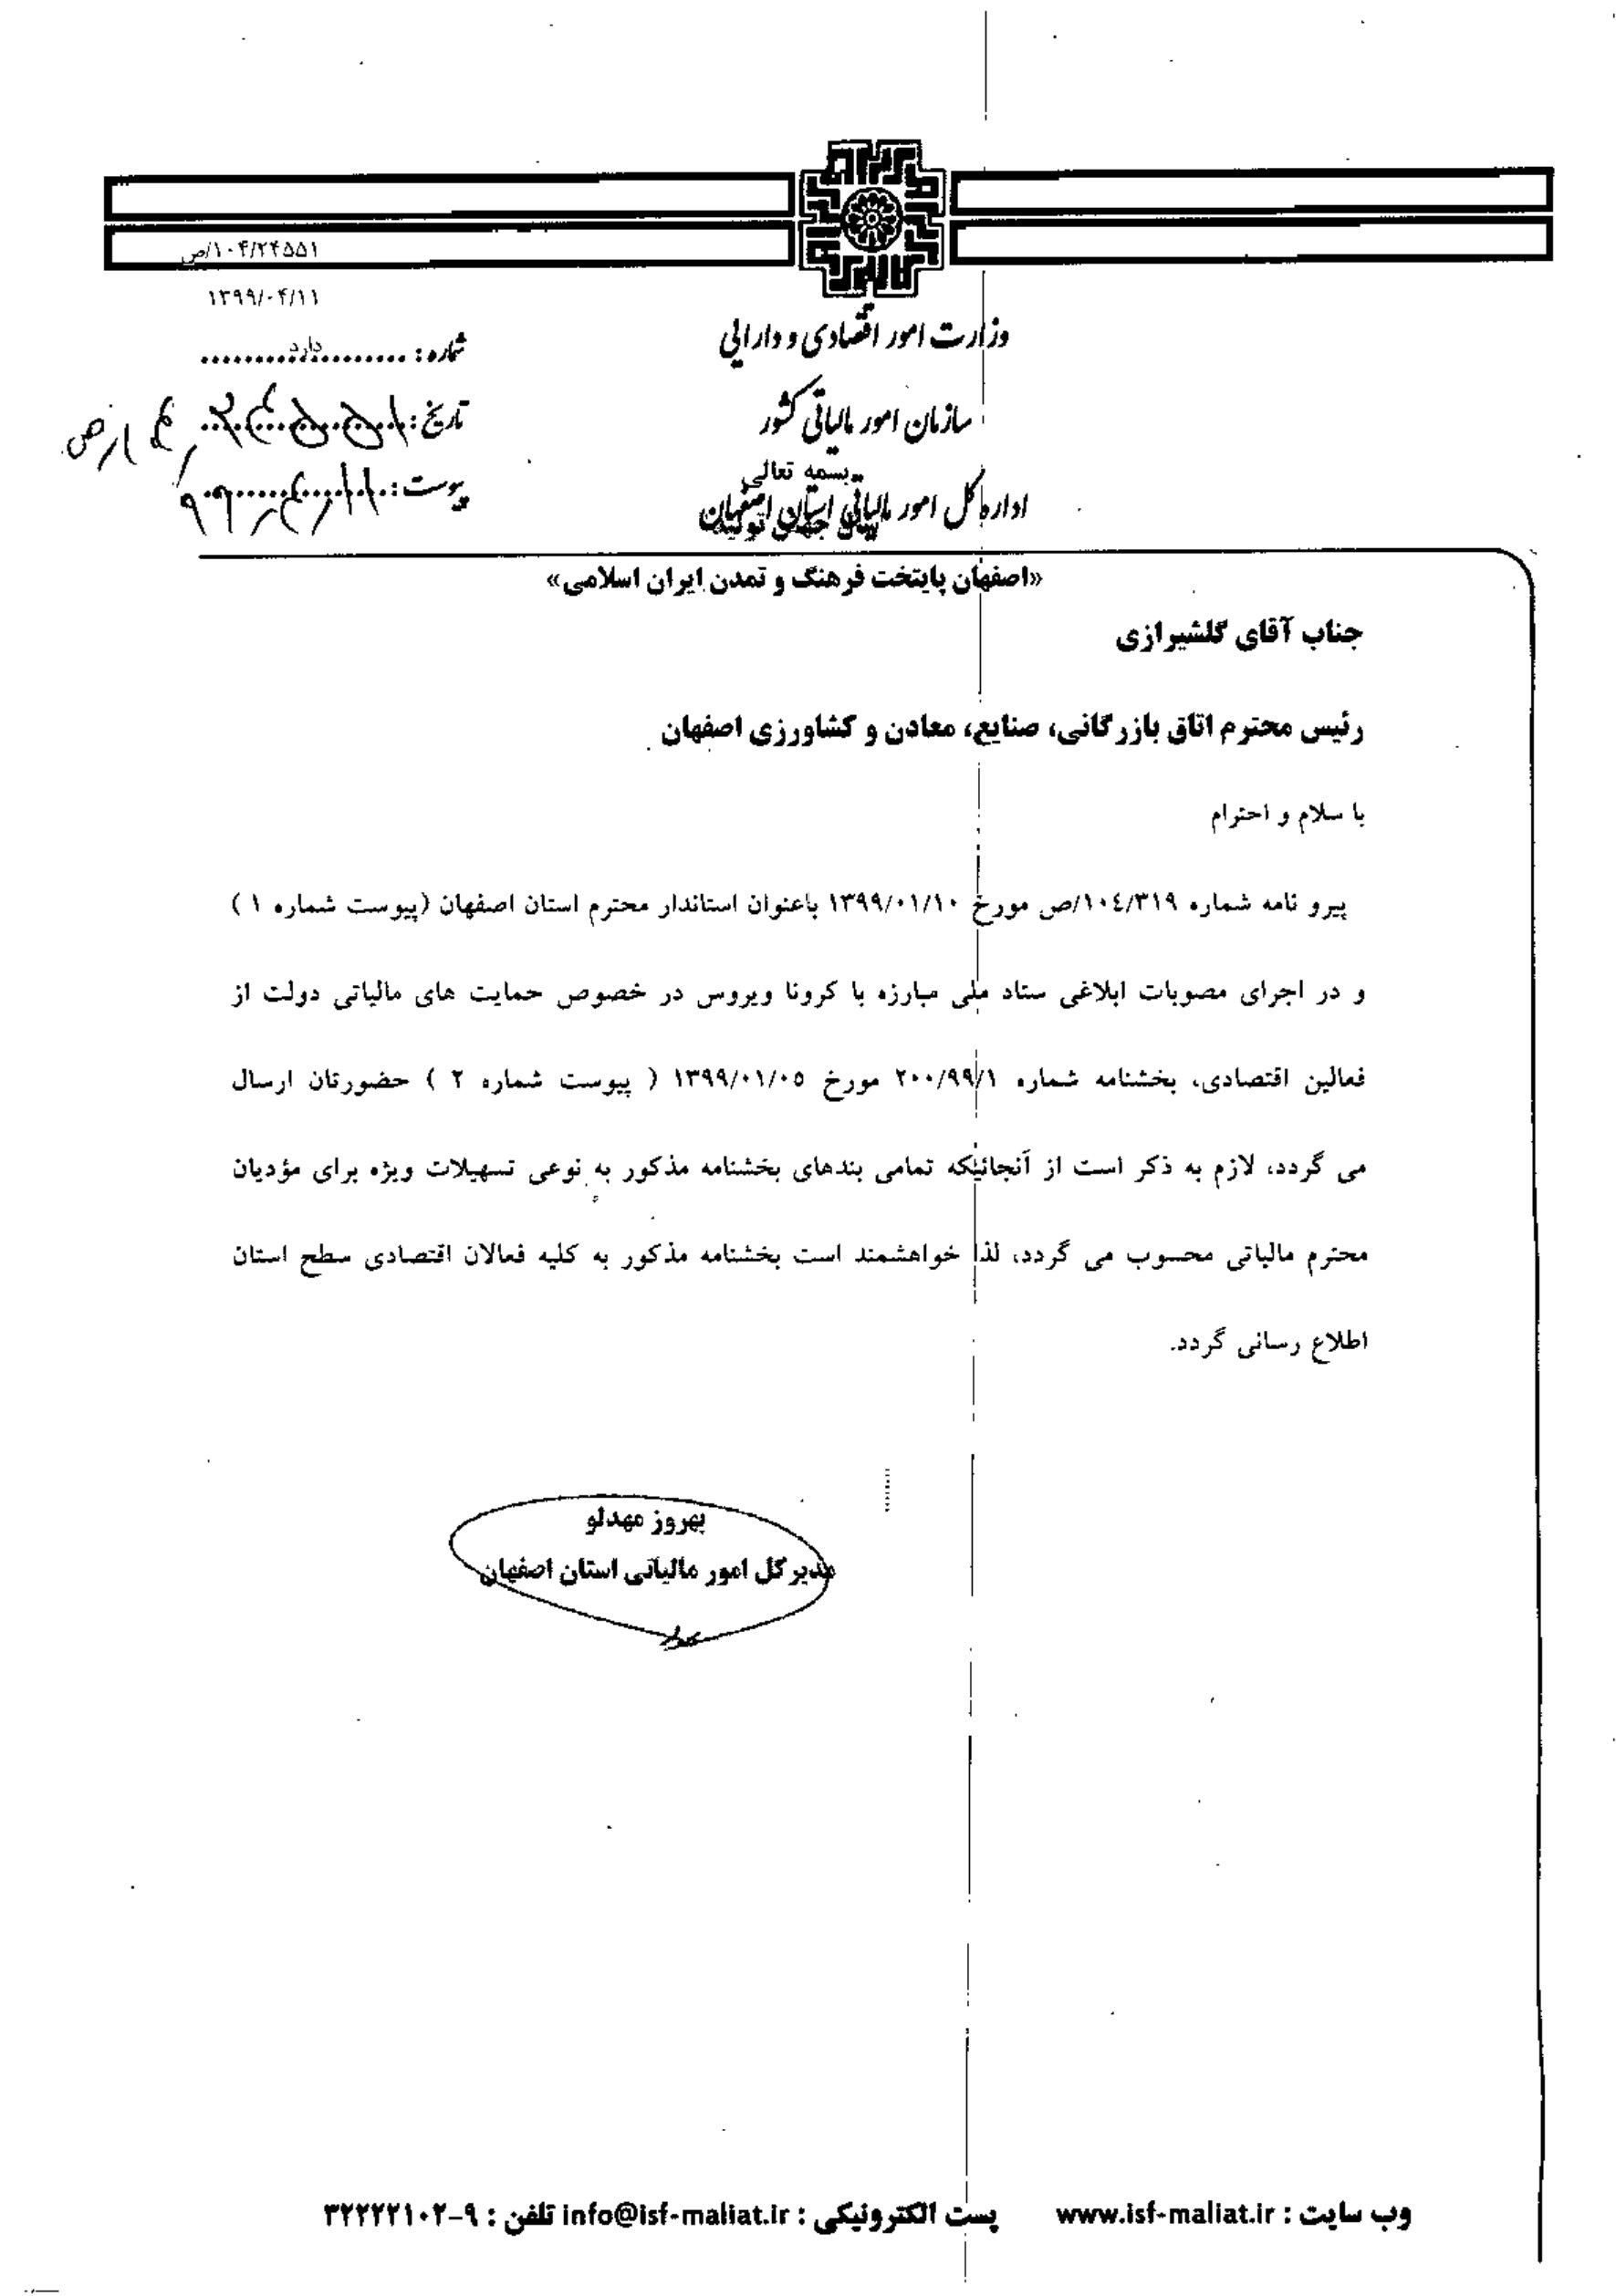 ۱۰۴/۲۴۵۵۱/ص
۱۳۹۹/۰۴/۱۱
وزارت امور اقتصادی و دارایی
شماره :
دارد
سازمان امور مالیاتی کشور
تاریخ :
بسمه تعالی
اداره کل امور مالیاتی استان اصفهان
پیوست :
۹۹/۴/۱۱
جهش تولید
«اصفهان پایتخت فرهنگ و تمدن ایران اسلامی»
جناب آقای گلشیرازی
رئیس محترم اتاق بازرگانی، صنایع، معادن و کشاورزی اصفهان
با سلام و احترام
پیرو نامه شماره ۱۰٤/۳۱۹/ص مورخ ۱۳۹۹/۰۱/۱۰ باعنوان استاندار محترم استان اصفهان (پیوست شماره ۱ )
و در اجرای مصوبات ابلاغی ستاد ملی مبارزه با کرونا ویروس در خصوص حمایت های مالیاتی دولت از
فعالین اقتصادی، بخشنامه شماره ۲۰۰/۹۹/۱ مورخ ۱۳۹۹/۰۱/۰۵ ( پیوست شماره ۲ ) حضورتان ارسال
می گردد، لازم به ذکر است از آنجائیکه تمامی بندهای بخشنامه مذکور به نوعی تسهیلات ویژه برای مؤدیان
محترم مالیاتی محسوب می گردد، لذا خواهشمند است بخشنامه مذکور به کلیه فعالان اقتصادی سطح استان
اطلاع رسانی گردد.
بهروز مهدلو
مدیر کل امور مالیاتی استان اصفهان
وب سایت : www.isf-maliat.ir پست الکترونیکی : info@isf-maliat.ir تلفن : ۹-۳۲۲۲۲۱۰۲